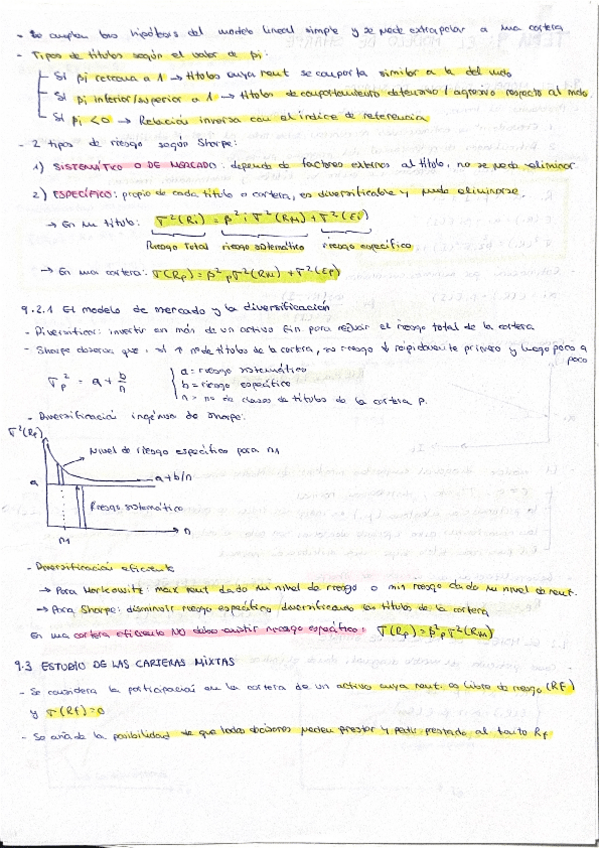 - Se cumplen las hipótesis del modelo lineal simple y se puede extrapolar a una cartera
- Tipos de títulos según el valor de βi:
Si βi cercana a 1 → títulos cuya rent se comporta similar a la del mdo
Si βi inferior/superior a 1 → títulos de comportamiento defensivo / agresivo respecto al mdo.
Si βi < 0 → Relación inversa con el índice de referencia
- 2 tipos de riesgo según Sharpe:
1) SISTEMÁTICO O DE MERCADO: depende de factores externos al título, no se puede eliminar.
2) ESPECÍFICO: propio de cada título o cartera, es diversificable y puede eliminarse.
→ En un título: σ²(Ri) = β²i σ²(RM) + σ²(Ei)
Riesgo Total riesgo sistemático riesgo específico
→ En una cartera: σ(Rp) = β²p σ²(RM) + σ²(Ep)
9.2.1 El modelo de mercado y la diversificación
- Diversificar: invertir en más de un activo fin. para reducir el riesgo total de la cartera
- Sharpe observa que: si ↑ nº de títulos de la cartera, su riesgo ↓ rápidamente primero y luego poco a poco
σp² = a + b/n
a = riesgo sistemático
b = riesgo específico
n = no de clases de títulos de la cartera p.
- Diversificación ingenua de Sharpe:
σ²(Rp)
Nivel de riesgo específico para n1
a + b/n
a
Riesgo sistemático
n1
n
- Diversificación eficiente
→ Para Markowitz: max rent dado un nivel de riesgo o min riesgo dado un nivel de rent.
→ Para Sharpe: disminuir riesgo específico diversificando los títulos de la cartera
En una cartera eficiente NO debe existir riesgo específico: σ(Rp) = β²p σ²(RM)
9.3 ESTUDIO DE LAS CARTERAS MIXTAS
- Se considera la participación en la cartera de un activo cuya rent. es libre de riesgo (RF)
y σ(Rf) = 0
- Se añade la posibilidad de que los decisores pueden prestar y pedir prestado al tanto Rf